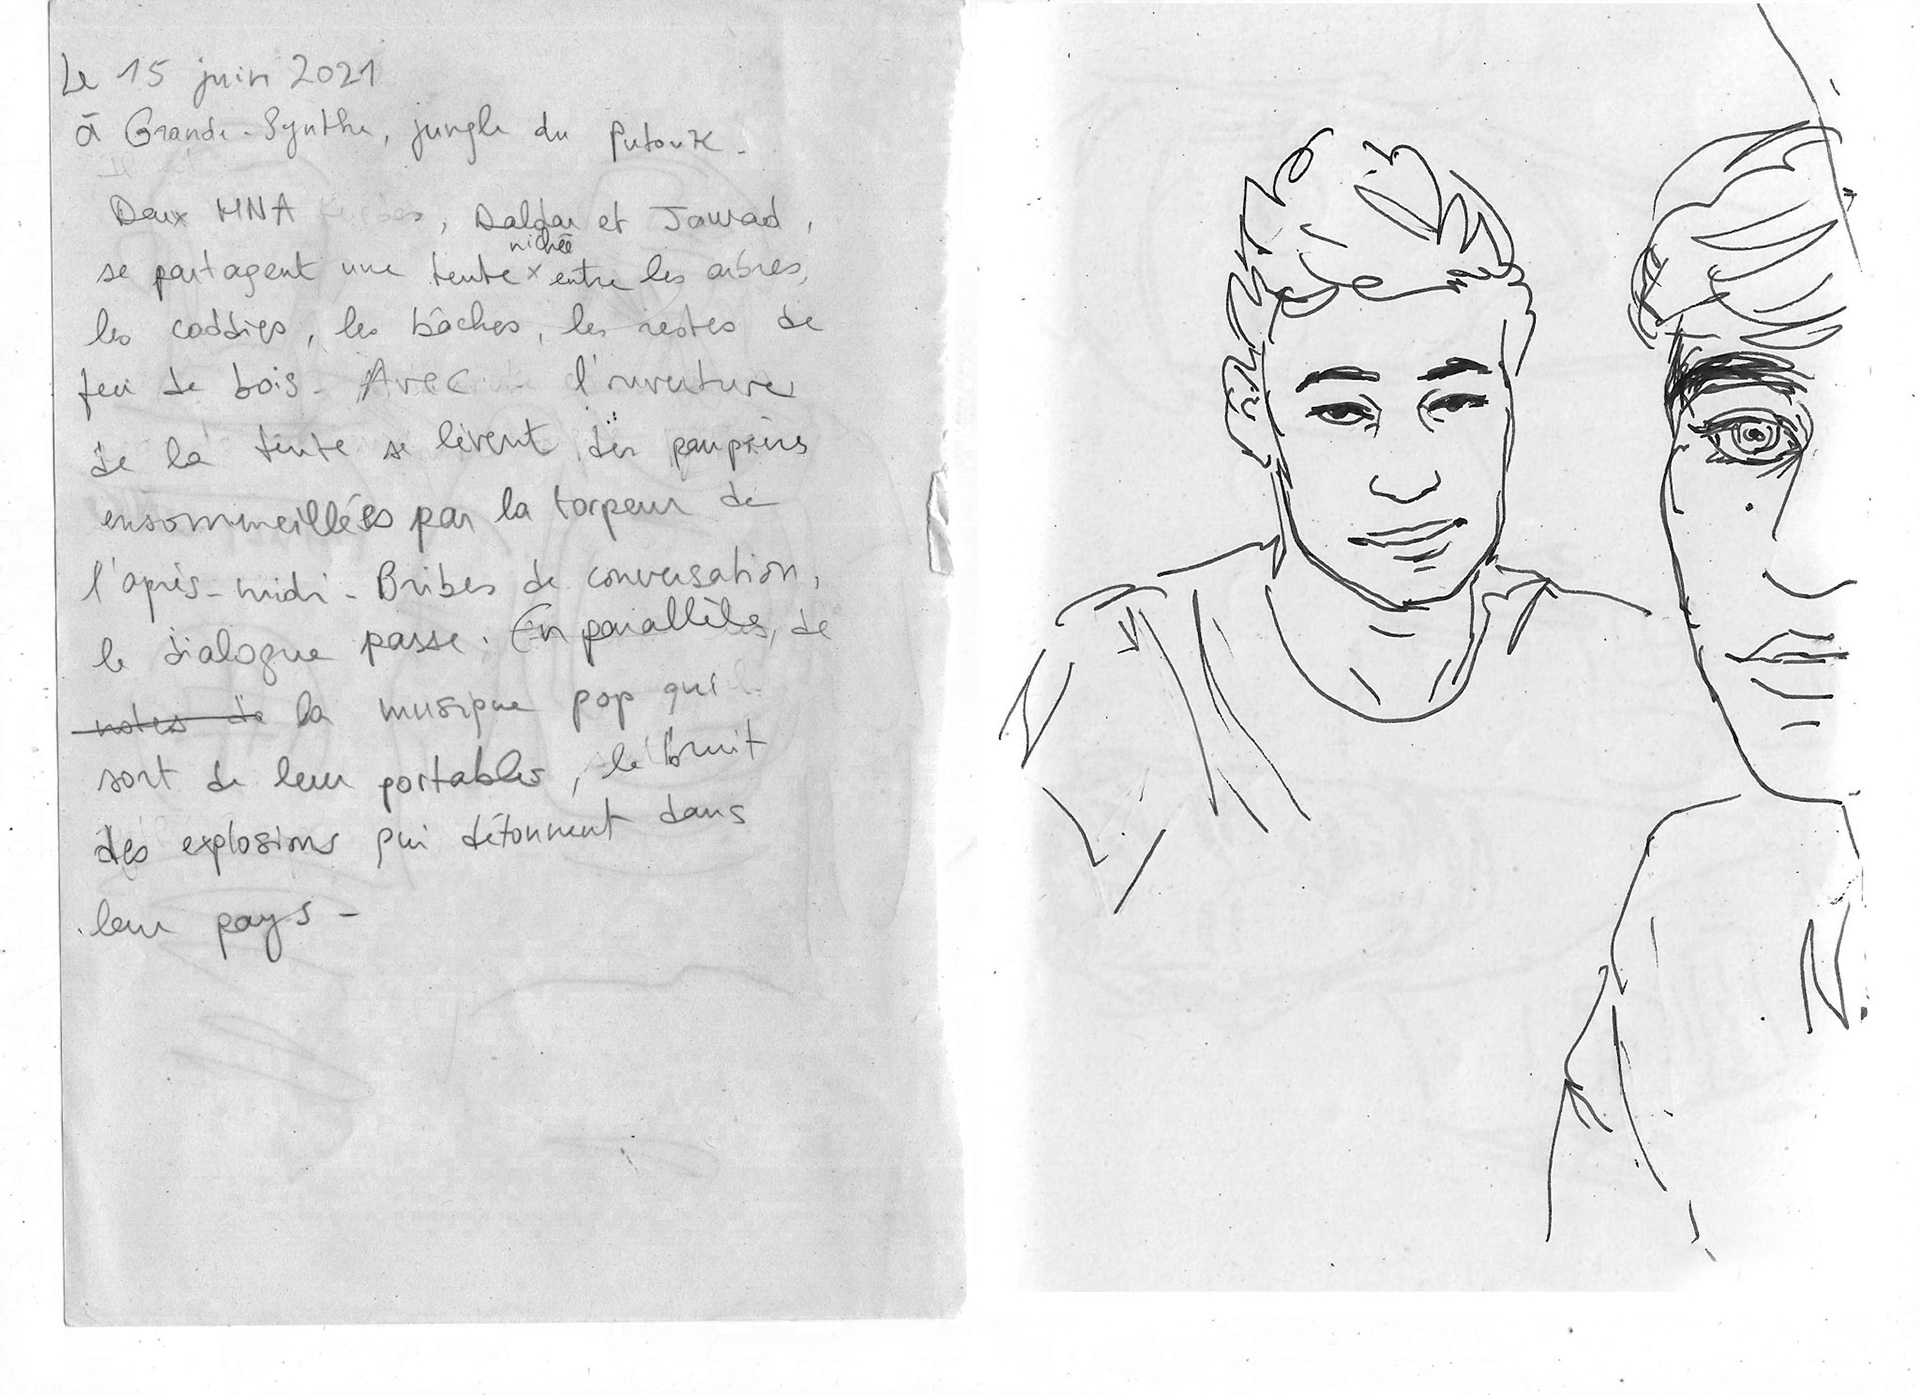 Le 15 juin 2021
à Grande-Synthe, jungle du Putouk.
Deux MNA, Daldar et Jawad,
nichée
se partagent une tente x entre les arbres,
les caddies, les bâches, les restes de
feu de bois. Avec l'ouverture
de la tente se lèvent des paupières
ensommeillées par la torpeur de
l'après-midi. Bribes de conversation,
le dialogue passe. En parallèle, de
notes de la musique pop qui
sort de leur portable, le bruit
des explosions qui détonnent dans
leur pays -
N.